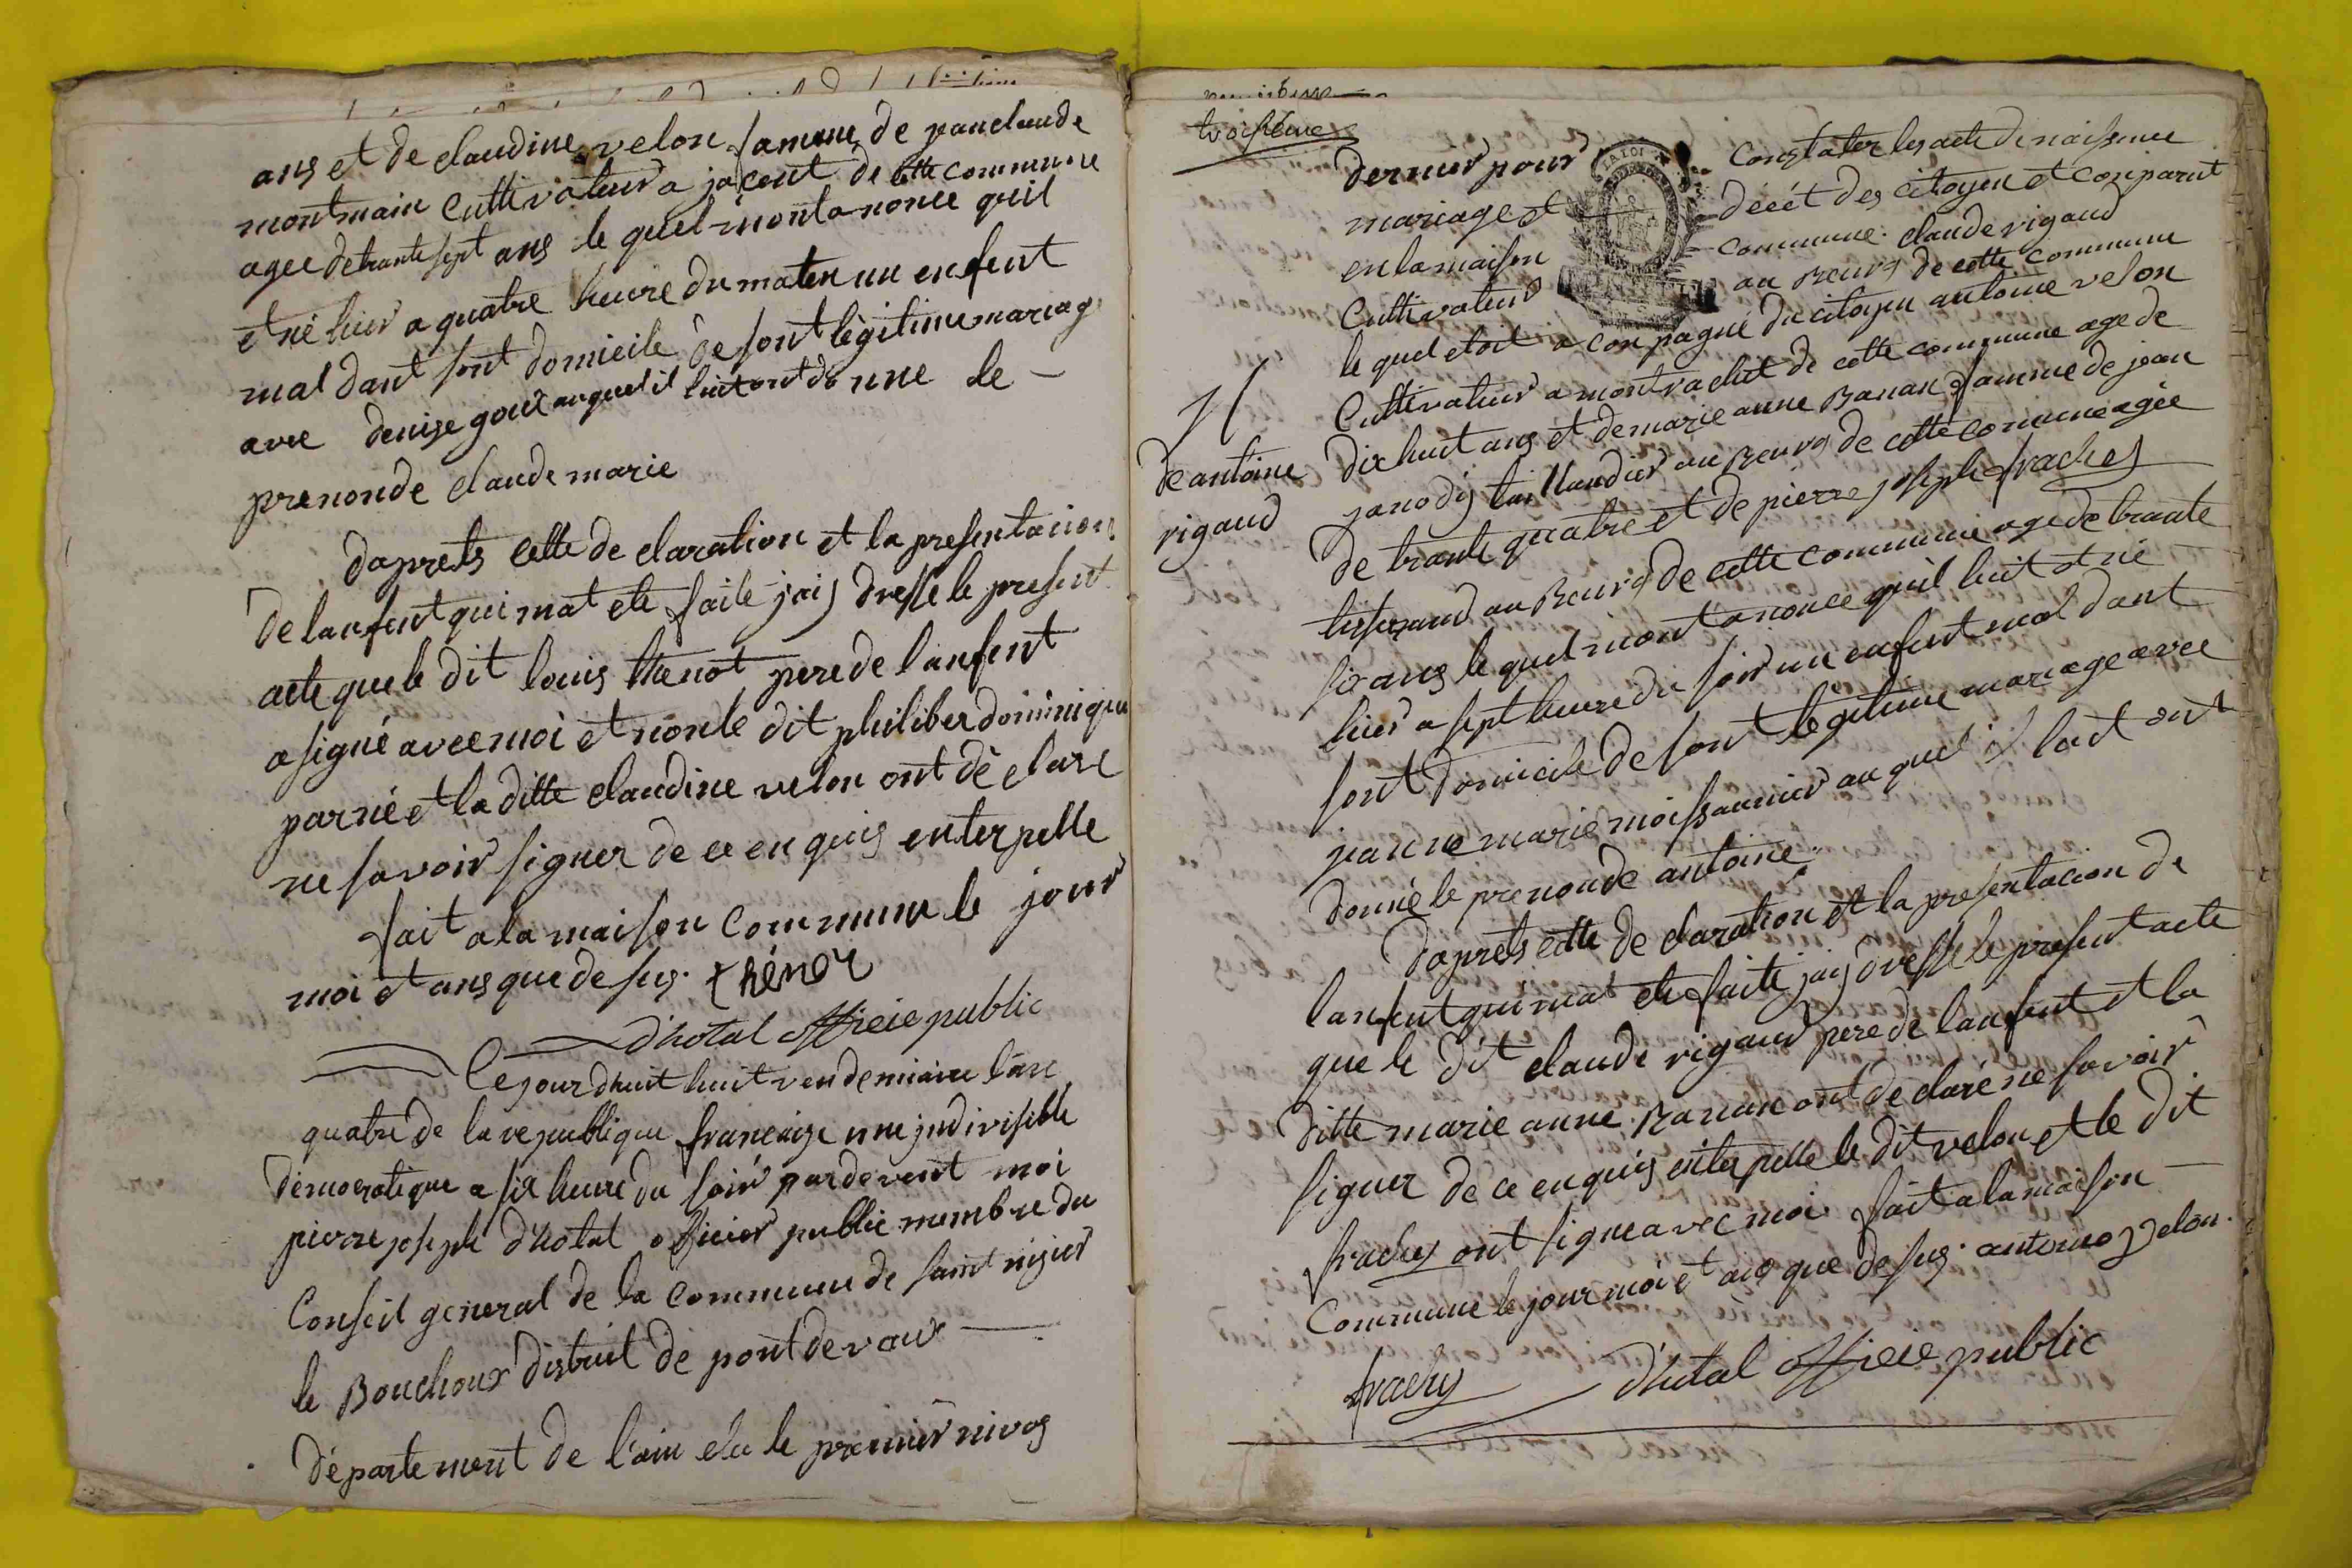 ans et de claudine velon famme de jeanclaude
montmain cuttivateur a jacent de cette commune
agee detrante sept ans le quel mont anonce quil
et né hier a quatre heure du maten un enfent
mal dant sont domicile de sont lègitime mariag
avec denise gout auquel il luit ont do nne le –
prenonde claude marie
daprets cette de claration et la presentacion
de lanfent qui mat ete faite jais dressé le present
acte que le dit louis thenot pere de lanfent
a signé avec moi et non le dit philiber dominique
parnié et la ditte claudine velon ont dé claré
ne savoir signer de ce en quis enterpellé
fait a la maison commune le jour
moi et ans que de sus. thénot
d'hotal officie public
Ce jour dhuit huit vendemiaire l'an
quatre de la republique francaize une jndivisible
démocratique a six heure du soir pardevent moi
pierre joseph d'hotal officier public membre du
Conseil general de la commune de saint nizier
le Bouchoux district de pont de vaux
département de l'ain elu le premier nivos
troisième
dernier pour constater les acte de naissance
mariage et décét des citoyen et conparut
en la maison commune claude rigaud
Cuttivateur au Bourg de cette commune
le quel etoit a conpagné du citoyen antoine velon
Cuttivateur a montrachut de cette commune age de
dixhuit ans et de marie anne Banan famme de jean
janody taillandier au Bourg de cette commune agée
de trante quatre et de pierre joseph fraches
tisserand au Bourg de cette commune age de trante
six ans le quel mont anonce quil luit et né
hier a sept heure du soir un enfent mal dant
sont domicile de sont légitime mariage avec
jeanne marie moissonnier au quel il luit ont
donné le prenonde antoine.
N
de antoine
rigaud
daprets cette de claration et la presentacion de
lanfent qui mat ete faite jais dressé le present acte
que le dit claude rigaud pere de lanfent et la
ditte marie anne Banan ont de claré ne savoir
signer de ce en quis enterpellé le dit velon et le dit
fraches ont signe avec moi fait a la maison
Commune le jour moi et ans que de sus. antoine velon.
fraches d'hotal officie public
LA LOI